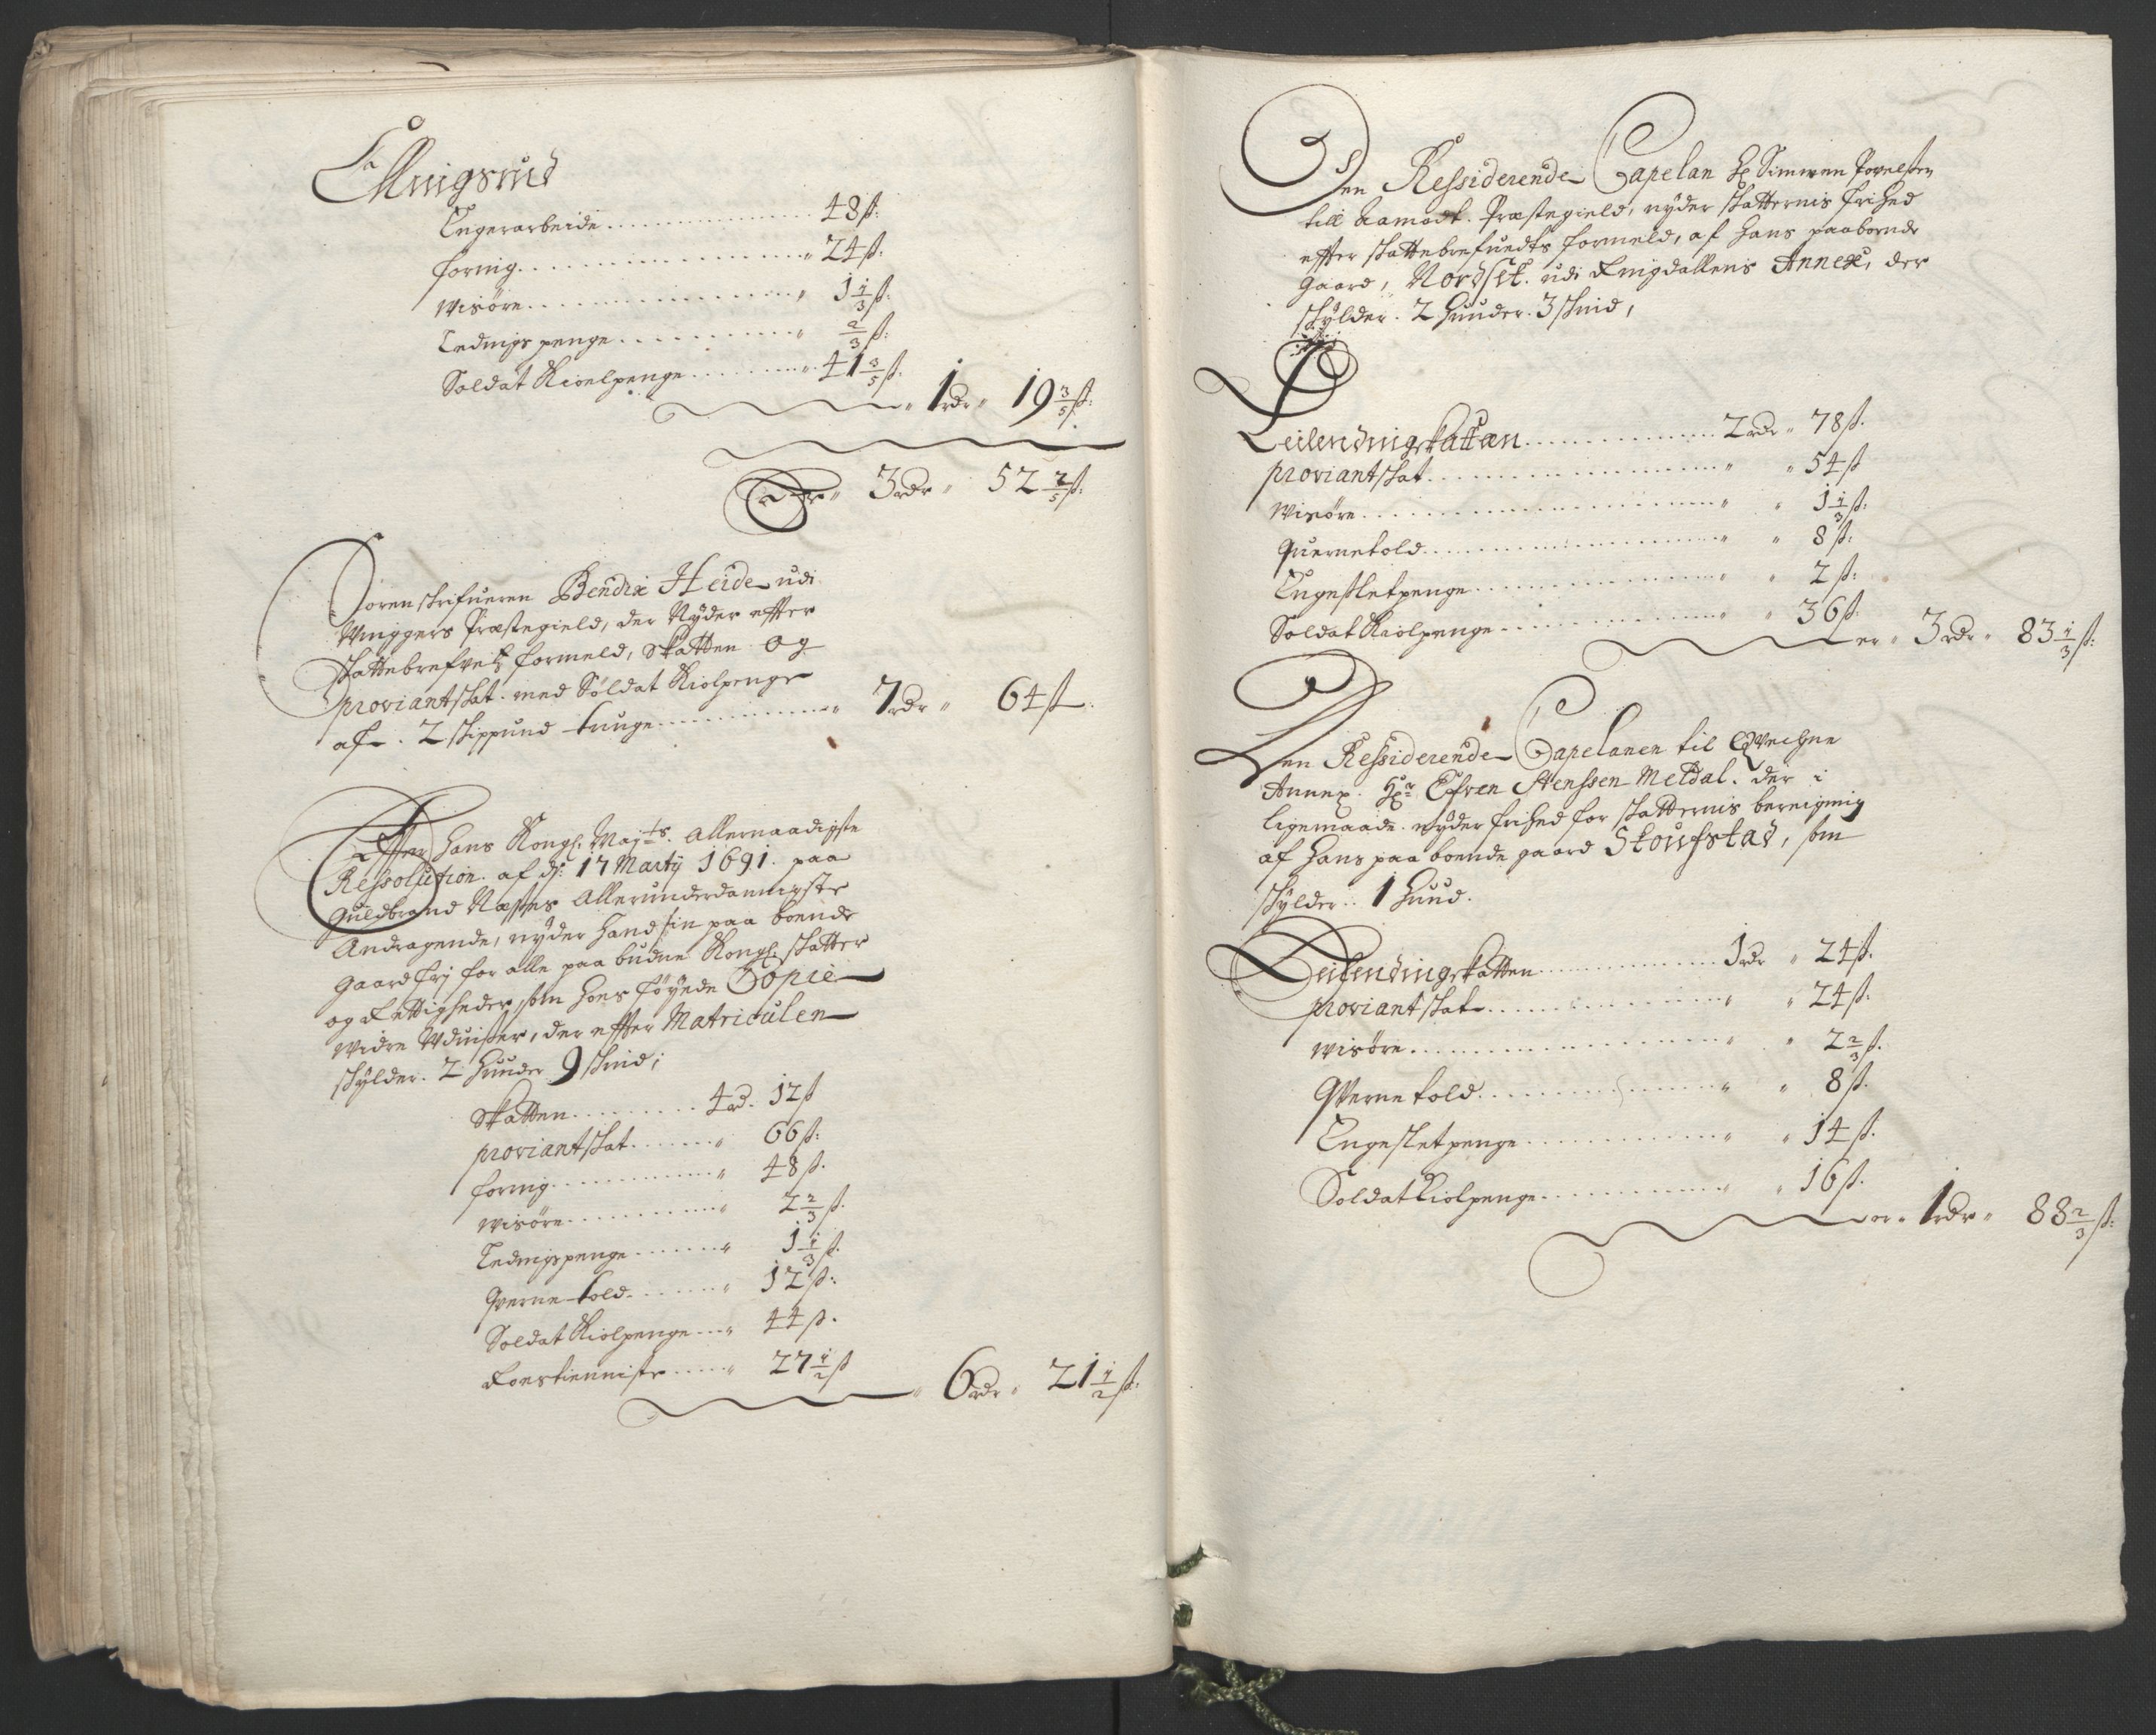 Ellingsrud
Engerarbeide ........ 48 ß:
foring ........ " 24 ß:
Wisøre ........ " 1 1/3 ß:
Ledings penge ........ " 2/3 ß:
Soldat Kioelpenge ........ " 41 3/5 ß:
" 1 rdr " 19 3/5 ß:
er " 3 rdr " 52 2/5 ß:
Sorenskrifueren Bendix Heide udi
Winggers Præstegield, der Nyder effter
skattebrefvetz formeld, skatten og
proviantskat med Soldat Kiolpenge
af . 2 skippund tunge ........ " 7 rdr " 64 ß.
Effter Hans Kongl. Majts. Allernaadigste
Ressolution af dj: 17 Martij 1691. paa
Guldbrand Næsses Allerunderdannigste
Andragende, nyder Hand sin paa boende
gaard frj for alle paa budne Kongl. skatter
og Rettigheder, som hoes føyede Copie
Widre Wduiser, der effter Matriculen
skylder. 2 Huuder 9 skind;
Skatten ........ 4 rd. 12 ß
proviantskat ........ " 66 ß:
foring ........ " 48 ß.
Wisøre ........ " 2 2/3 ß.
Ledingspenge ........ " 1 1/3 ß.
Qverne told ........ " 12 ß:
Soldat Kiolpenge ... " 44 ß.
Roestienniste ..... " 27 1/2 ß
" 6 rdr " 21 1/2 ß:
Den Ressiderende Capelan Hr Simmen Povelsen
till Aamodt Præstegield, nyder skatternis frihed
effter skattebrefuedts formeld, af hans paaboende
gaard, Nordset. udi Ringdallens Annex, der
skylder. 2 Huuder. 3 skind,
Leilendingskatten ........ 2 rdr " 78 ß.
proviantskat ........ " " 54 ß
Wisøre ........ " " 1 1/3 ß:
Quernetold ........ " " 8 ß:
Engesletpenge ........ " " 2 ß:
Soldat Kiolpenge ........ " " 36 ß:
er " 3 rdr " 83 1/3 ß:
Den Ressiderende Capelanen til
Annex. Hr Efren Stenssen Meldal. der i
ligemaade nyder frihed for skatternis bereigning
af hans paa boende gaard Stoufstad, som
skylder .. 1 Huud.
Leilendingskatten ........ 1 rdr " 24 ß.
proviantskat ........ " " 24 ß.
Wisøre ........ " " 2 2/3 ß.
Qverne told ........ " " 8 ß.
Engesletpenge ........ " " 14 ß.
Soldat Kiolpenge ........ " " 16 ß.
er " 1 rdr " 88 2/3 ß: